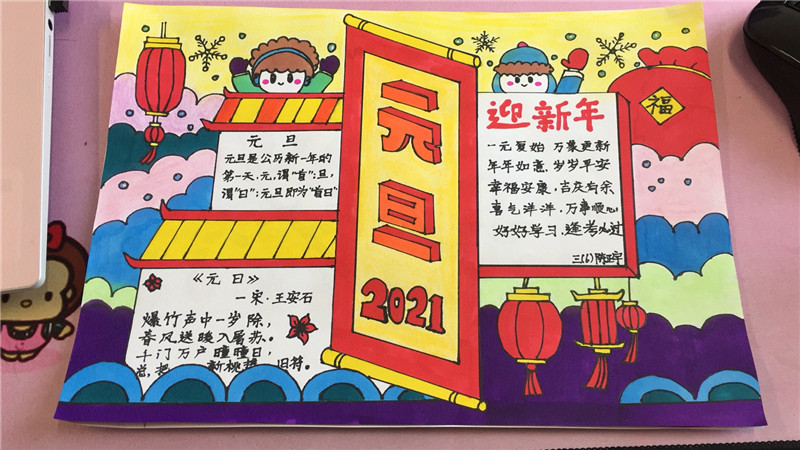 元旦
2021
元 旦
元旦是公历新一年的
第一天.元,谓"首";旦,
谓"日";元旦即为"首日"
《元日》
一宋·王安石
爆竹声中一岁除,
春风送暖入屠苏.
千门万户曈曈日,
总把 新桃换 旧符.
迎新年
一元复始 万象更新
年年如意,岁岁平安
幸福安康,吉庆有余
喜气洋洋,万事顺心
好好学习,逢考必过
三(6)
福